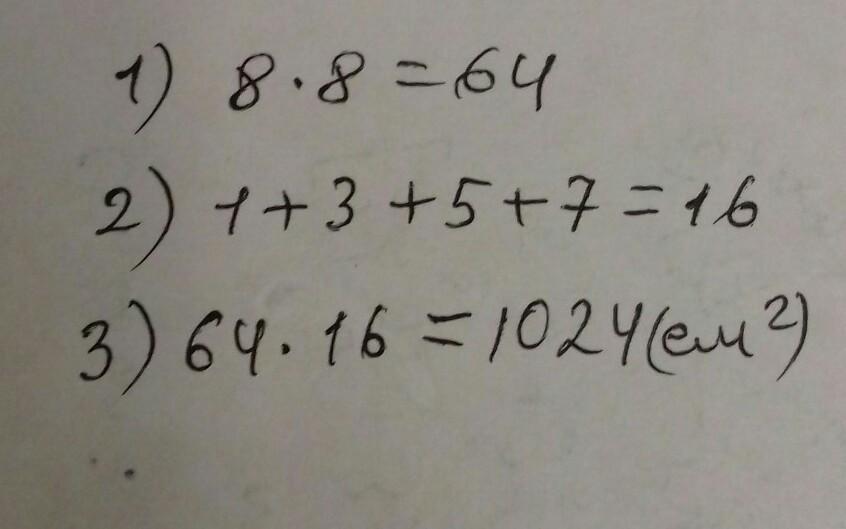 1) 8 · 8 = 64
2) 1 + 3 + 5 + 7 = 16
3) 64 · 16 = 1024 (см²)